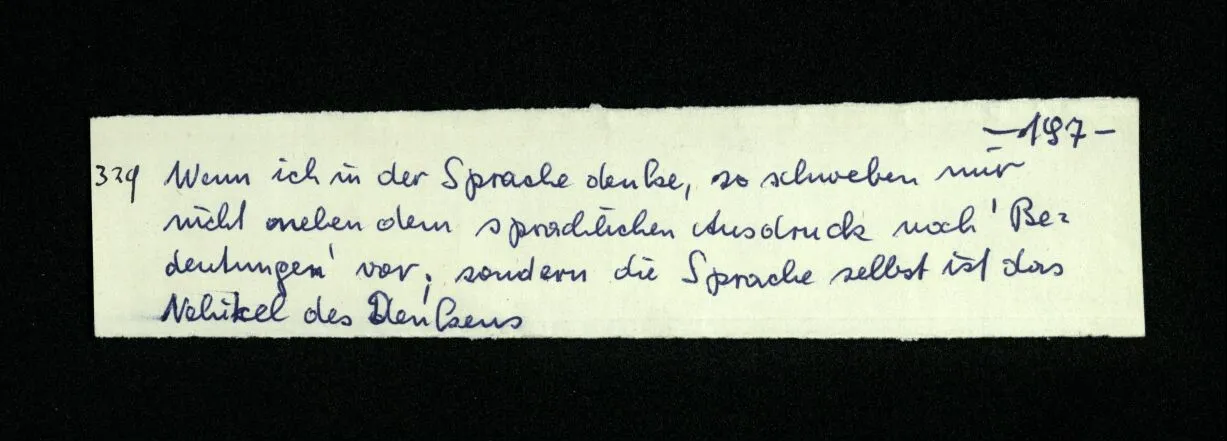 –197–
329 Wenn ich in der Sprache denke, so schweben mir
nicht neben dem sprachlichen Ausdruck noch 'Be=
deutungen' vor; sondern die Sprache selbst ist das
Vehikel des Denkens